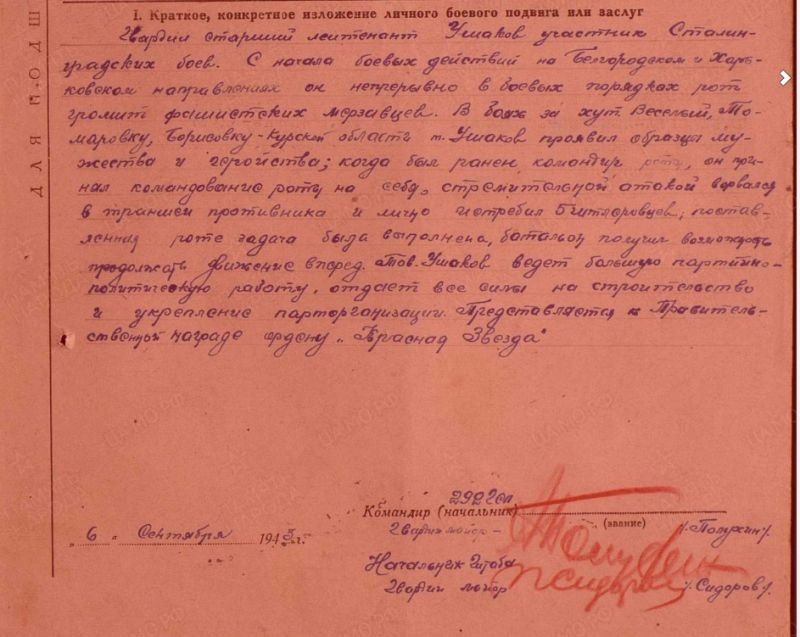 I. Краткое, конкретное изложение личного боевого подвига или заслуг
Гвардии старший лейтенант Ушаков участник Сталин-
градских боев. С начала боевых действий на Белгородском и Харь-
ковском направлениях он непрерывно в боевых порядках рот
громит фашистских мерзавцев. В боях за хут. Веселый, То-
маровку, Борисовку - Курской области т. Ушаков проявил образцы му-
жества и геройства; когда был ранен командир роты, он при-
нял командование роты на себя, стремительной атакой ворвался
в траншеи противника и лично истребил 5 гитлеровцев; постав-
ленная роте задача была выполнена, батальон получил возможность
продолжать движение вперед. Тов. Ушаков ведет большую партийно-
политическую работу, отдает все силы на строительство
и укрепление парторганизации. Представляется к Правитель-
ственной награде ордену „Красная Звезда"
292 гсп
Командир (начальник)
(звание)
„6" Сентября 1943 г.
Гвардии майор - /Полухин/
Начальник Штаба
Гвардии майор /Сидоров/
ДЛЯ ПОДШ
ЦАМО.РФ